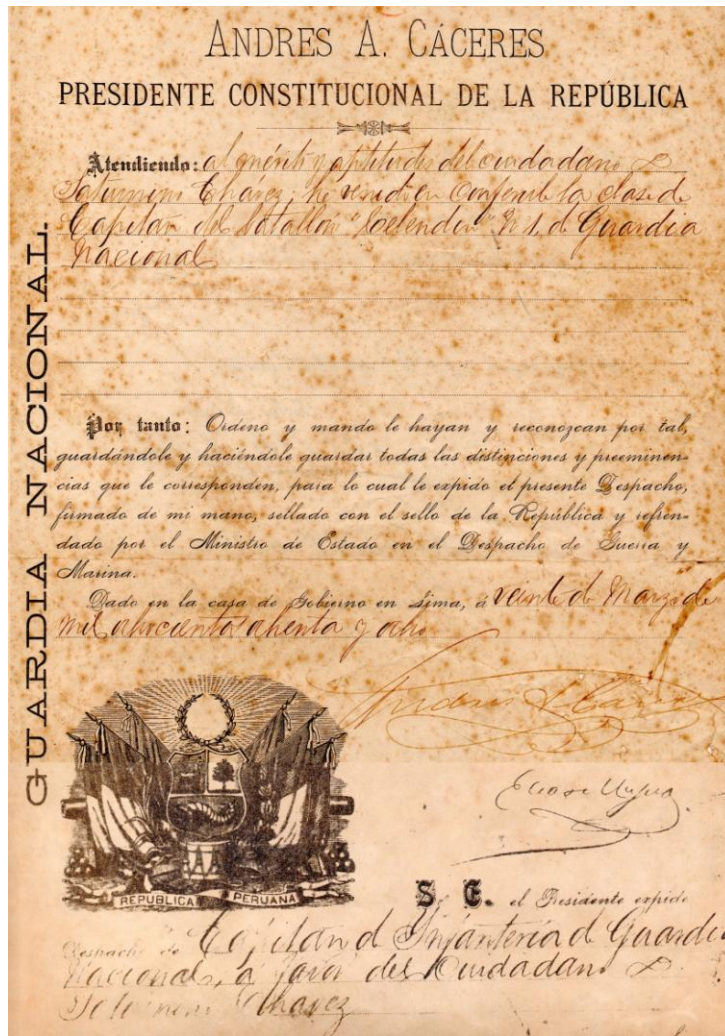 ANDRES A. CÁCERES
PRESIDENTE CONSTITUCIONAL DE LA REPÚBLICA
Atendiendo: al mérito y aptitudes del ciudadano D
Saturnino Chavez, he venido en conferirle la clase de
Capitán del Batallón "Celendin" N 1, de Guardia
Nacional
GUARDIA NACIONAL.
Por tanto: Ordeno y mando le hayan y reconozcan por tal,
guardándole y haciéndole guardar todas las distinciones y preeminen-
cias que le corresponden, para lo cual le expido el presente Despacho,
firmado de mi mano, sellado con el sello de la República y refren-
dado por el Ministro de Estado en el Despacho de Guerra y
Marina.
Dado en la casa de Gobierno en Lima, á veinte de Marzo de
mil ochocientos ochenta y ocho
REPUBLICA PERUANA
S. E. el Presidente expide
Despacho de Capitan d Infanteria d Guardia
Nacional, a favor del Ciudadano D
Saturnino Chavez